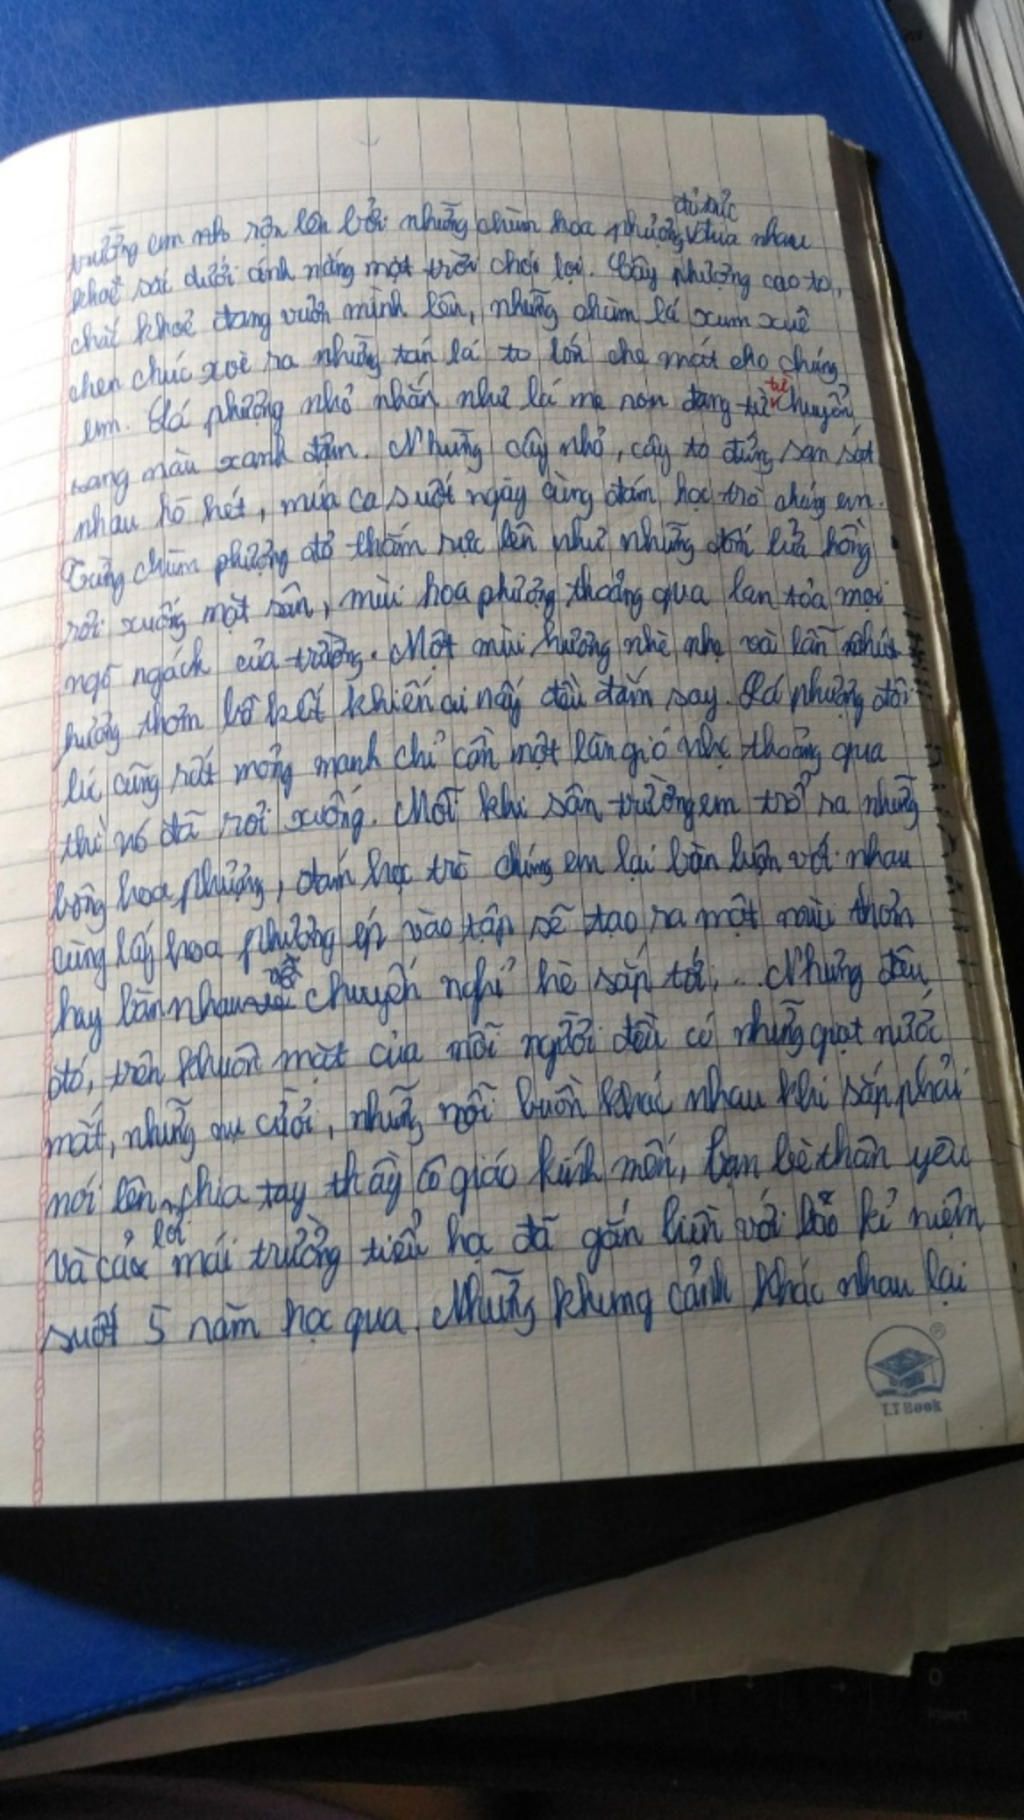 đỏ rực
trường em như rộn lên bởi những chùm hoa phượng đua nhau
khoe sắc dưới ánh nắng mặt trời chói lọi. Cây phượng cao to,
chắc khoẻ đang vươn mình lên, những chùm lá xum xuê
chen chúc xoè ra những tán lá to lớn che mát cho chúng
em. Lá phượng nhỏ nhắn như lá me non đang từ từ chuyển
sang màu xanh đậm. Những cây nhỏ, cây to đứng san sát
nhau hò hét, múa ca suốt ngày cùng đám học trò chúng em.
Từng chùm phượng đỏ thắm rực lên như những đốm lửa hồng
rơi xuống mặt sân, mùi hoa phượng thoảng qua lan tỏa mọi
ngõ ngách của trường. Một mùi hương nhè nhẹ và lẫn chút
hương thơm khiến ai nấy đều đắm say. Lá phượng đôi
lúc cũng rất mỏng manh chỉ cần một làn gió nhẹ thoảng qua
thì nó đã rơi xuống. Mỗi khi sân trường em trổ ra những
bông hoa phượng, đám học trò chúng em lại bàn luận với nhau
cùng lấy hoa phượng ép vào tập sẽ tạo ra một mùi thơm
hay bàn nhau về chuyến nghỉ hè sắp tới,... Nhưng đâu
đó, trên khuôn mặt của mỗi người đều có những giọt nước
mắt, những nụ cười, những nỗi buồn khác nhau khi sắp phải
nói lên lời chia tay thầy cô giáo kính mến, bạn bè thân yêu
và cả mái trường tiểu học đã gắn liền với bao kỉ niệm
suốt 5 năm học qua. Những khung cảnh khác nhau lại
T.T Book